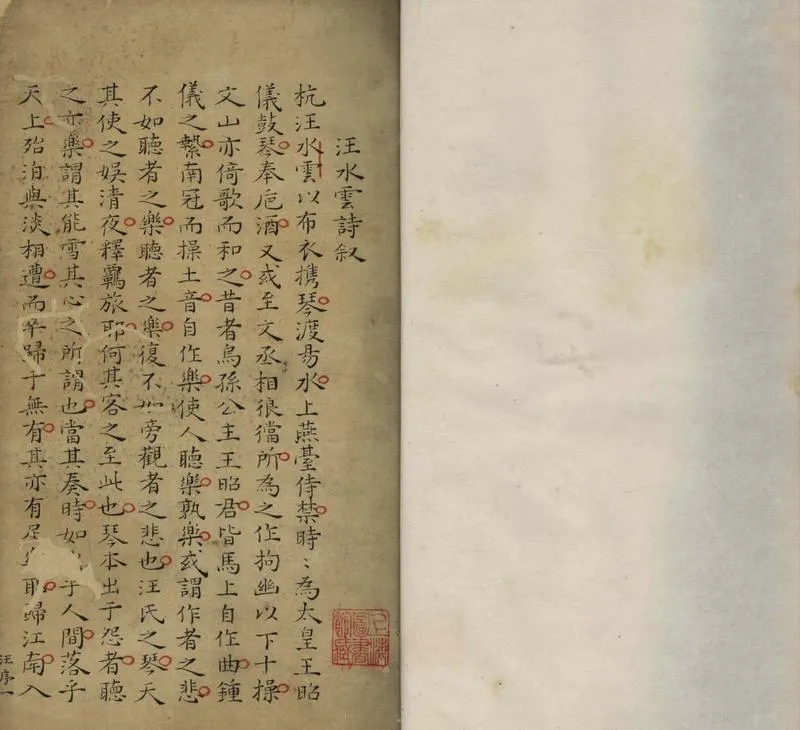 汪水雲詩叙
杭汪水雲以布衣携琴渡易水上燕臺侍禁時〻為太皇王昭
儀鼓琴奉卮酒又或至文丞相狼㹰所為之作拘幽以下十操
文山亦倚歌而和之昔者烏孫公主王昭君皆馬上自作曲鍾
儀之縶南冠而操土音自作樂使人聽樂孰樂或謂作者之悲
不如聽者之樂聽者之樂復不如旁觀者之悲也汪氏之琴天
其使之娛清夜釋羈旅耶何其客之至此也琴本出于怨者聽
之亦樂謂其能雪其心之所謂也當其奏時如乎人間落乎
天上殆泊與淡相遭而卒歸于無有其亦有耶歸江南入
汪序一